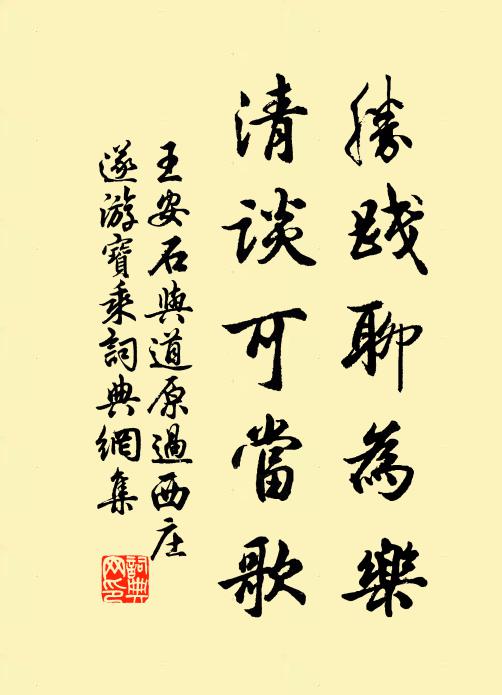 勝踐聊為樂
清談可當歌
王安石與道原過西庄
遂游寶乘詞典網集
詞典網印